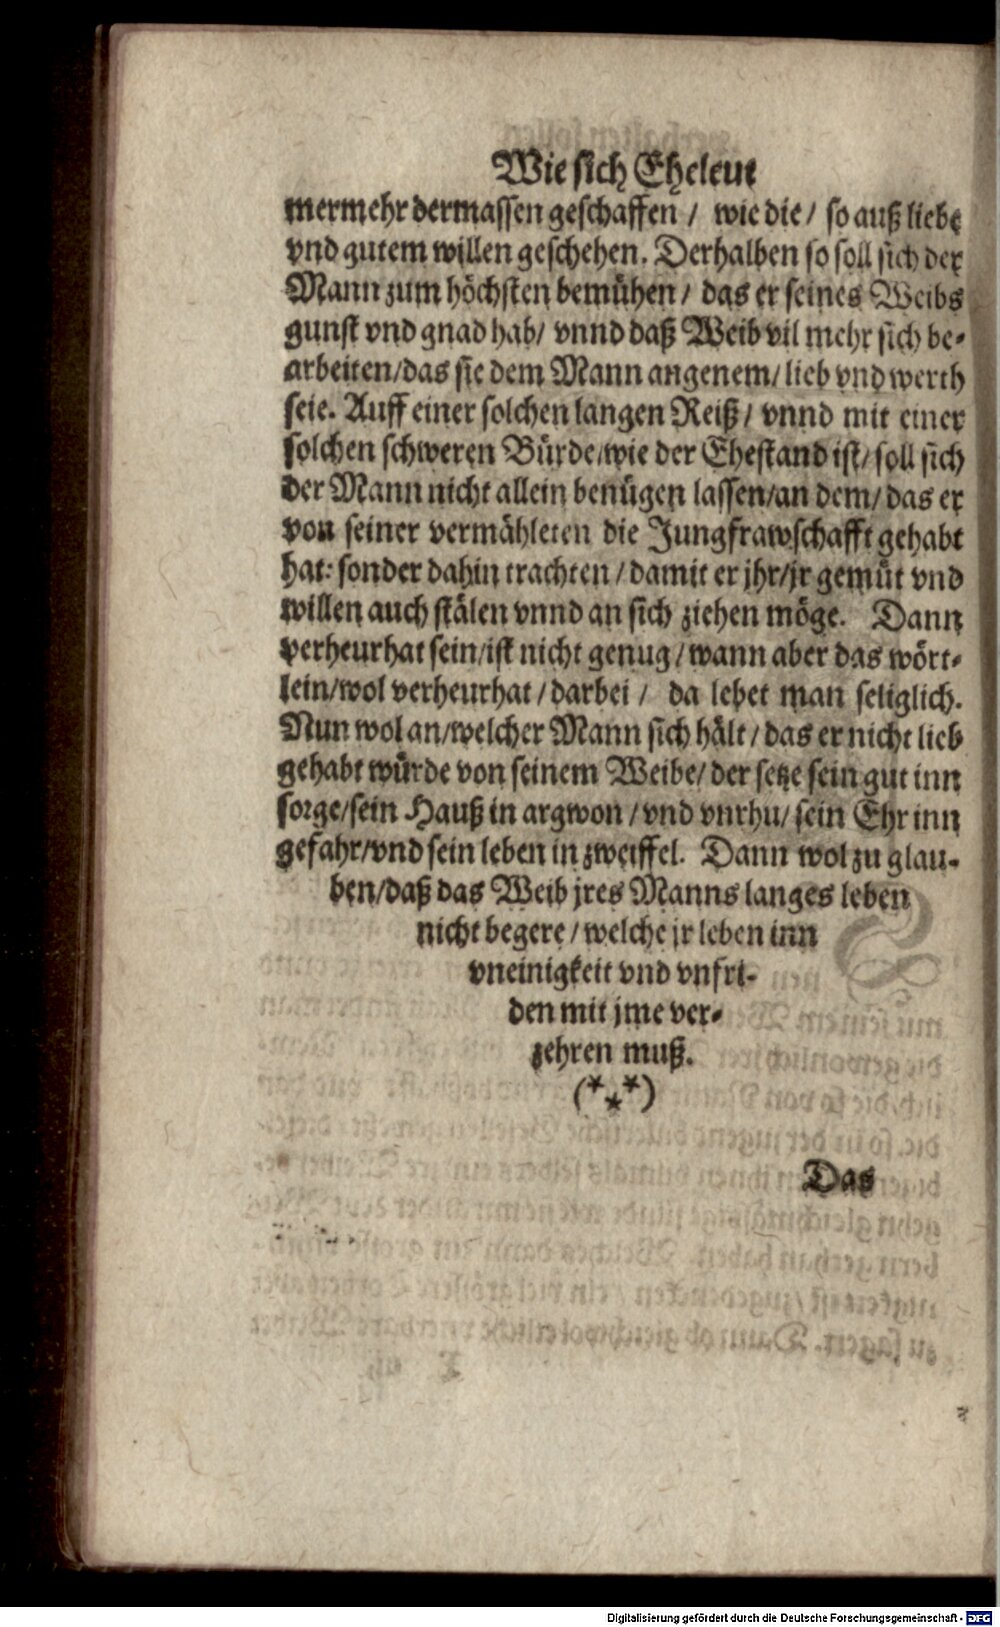 Wie sich Eheleut
mermehr dermassen geschaffen / wie die / so auß liebe
vnd gutem willen geschehen. Derhalben so soll sich der
Mann zum höchsten bemühen / das er seines Weibs
gunst vnd gnad hab / vnnd daß Weib vil mehr sich be-
arbeiten / das sie dem Mann angenem / lieb vnd werth
seie. Auff einer solchen langen Reiß / vnnd mit einer
solchen schweren Bürde / wie der Ehestand ist / soll sich
der Mann nicht allein benügen lassen / an dem / das er
von seiner vermähleten die Jungfrawschafft gehabt
hat: sonder dahin trachten / damit er jhr / jr gemüt vnd
willen auch stälen vnnd an sich ziehen möge. Dann
verheurhat sein / ist nicht genug / wann aber das wört-
lein / wol verheurhat / darbei / da lebet man seliglich.
Nun wol an / welcher Mann sich hält / das er nicht lieb
gehabt würde von seinem Weibe / der setze sein gut inn
sorge / sein Hauß in argwon / vnd vnrhu / sein Ehr inn
gefahr / vnd sein leben in zweiffel. Dann wol zu glau-
ben / daß das Weib jres Manns langes leben
nicht begere / welche jr leben inn
vneinigkeit vnd vnfri-
den mit jme ver-
zehren muß.
(***)
Das
Digitalisierung gefördert durch die Deutsche Forschungsgemeinschaft - DFG